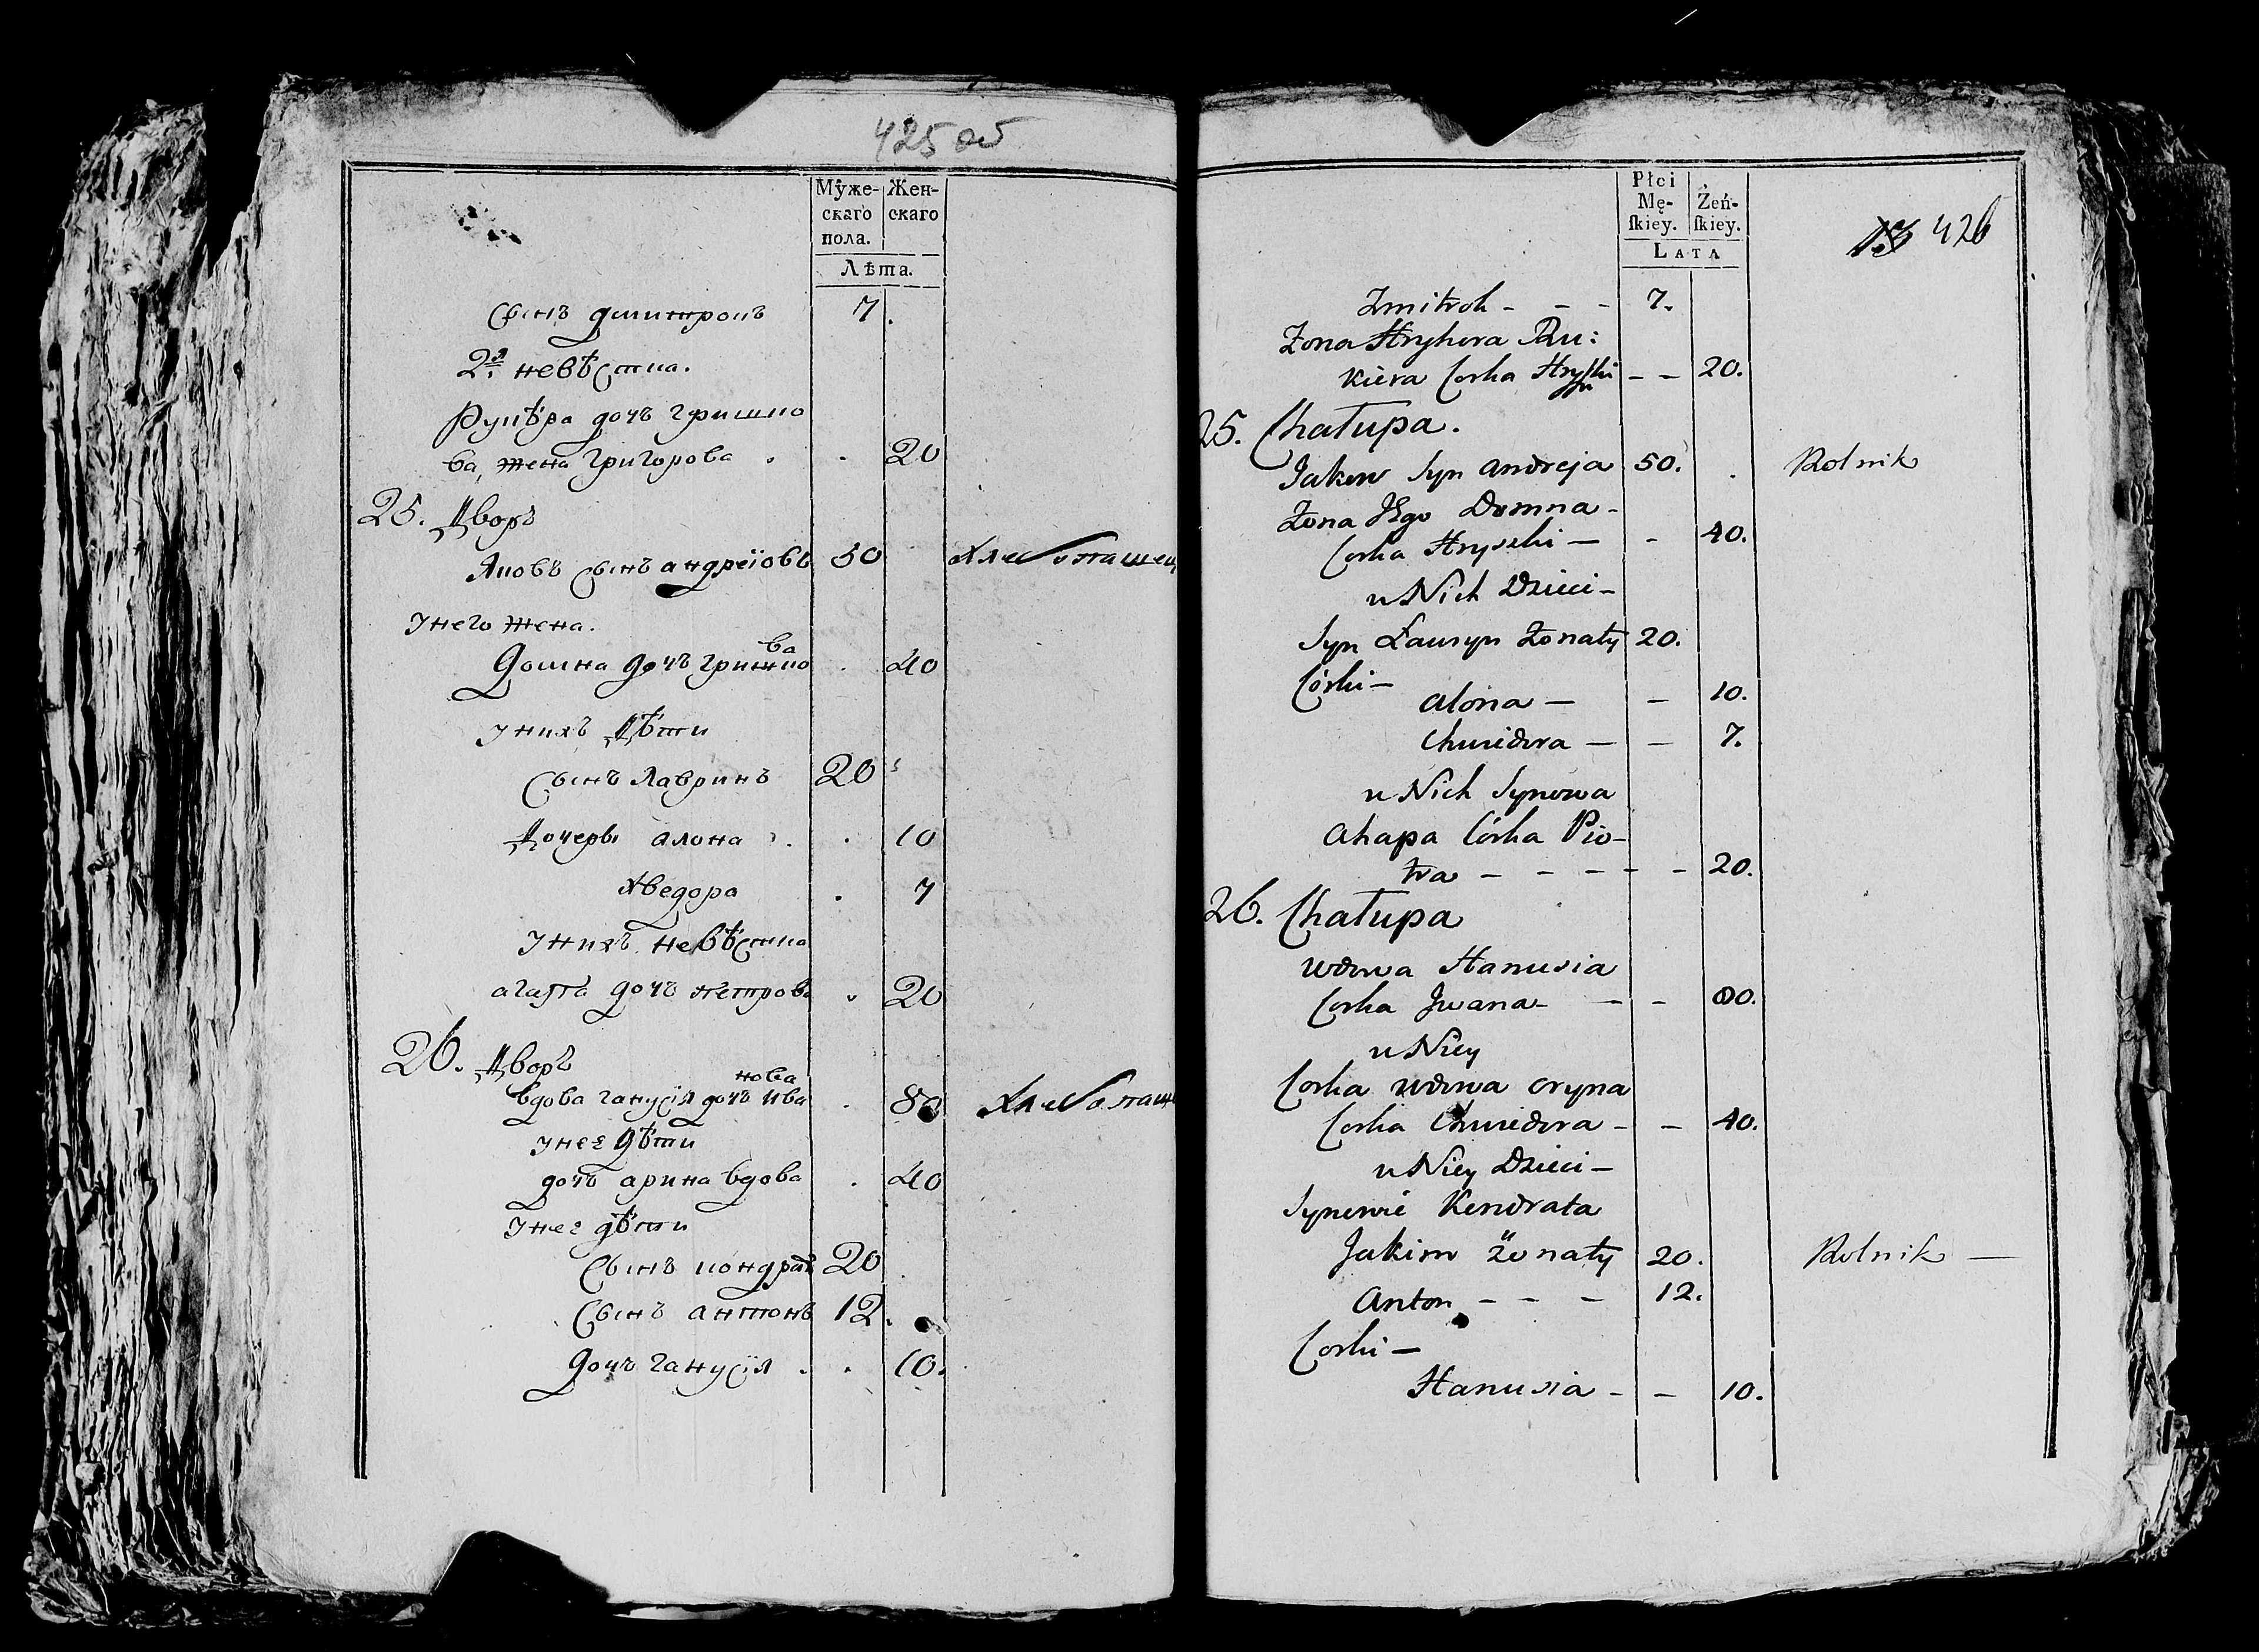 425 об
Муже- Жен-
скаго скаго
пола.
Лѣта.
Сынъ дмитрокъ 7.
2я невѣстка.
Рукѣра дочъ гришко
ва, жена григорова . . 20
25. Дворъ
Яковъ сынъ андреїовъ 50 хлебопашец
у него жена.
Домна дочъ гришко . 40
ва
у нихъ Дѣти
Сынъ Лавринъ 20
Дочеры алона . . 10
хведора . 7
у нихъ невѣстка
агапа дочъ петрова . 20
26. Дворъ
нова
вдова ганусія дочъ ива . 80 хлебопаш
у неё дѣти
дочъ арина вдова . 40
у неё дѣти
Сынъ кондрат 20
Сынъ антонъ 12.
Дочъ ганусія . . 10.
Płci
Mę- Żeń-
ſkiey. ſkiey.
LATA
13 426
Zmitrok - - - 7.
Żona Hryhora Ru:
kiera Corka Hryszki - - 20.
25. Chałupa.
Jakow Syn Andreja 50. Rolnik
Żona Jego Domna -
Corka Hryszki - - 40.
u Nich Dzieci -
Syn Ławryn Żonaty 20.
Córki -
Alona - - 10.
Chwiedora - - 7.
u Nich Synowa
Ahapa Córka Pio-
tra - - - - - 20.
26. Chałupa
Wdowa Hanusia
Corka Jwana - - - 80.
u Niey
Corka Wdowa Oryna
Corka Chwiedora - - 40.
u Niey Dzieci -
Synowie Kondrata
Jakim Żonaty 20. Rolnik -
Anton - - - 12.
Corki -
Hanusia - - 10.